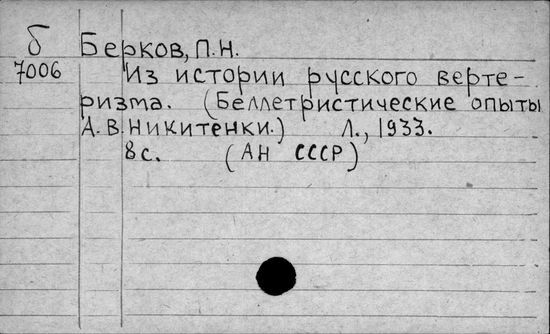 б Берков, П.Н.
7006 Из истории русского верте-
ризма. (Беллетристические опыты
А.В. Никитенки.) Л., 1933.
8с. (АН СССР)